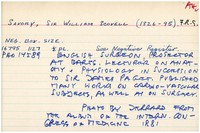 SAVORY, SIR WILLIAM SCOVELL (1826-95) F.R.S.
NEG. BOX. SIZE.
5 PL. See Negatives Register
ENGLISH SURGEON, PROSECTOR
AT BARTS. LECTURER ON ANATO-
MY & PHYSIOLOGY IN SUCCESSION
TO SIR JAMES PAGET. PUBLISHED
MANY WORKS ON CARDIO-VASCULAR
SUBJECTS, AS WELL AS ON SURGERY.
PHOTO BY BARRAUD FROM
THE ALBUM OF THE INTERN. CON-
GRESS OF MEDICINE 1881